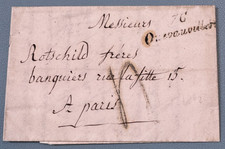 Messieurs
76
Rotschild frères
banquiers rue lafitte 15.
A paris